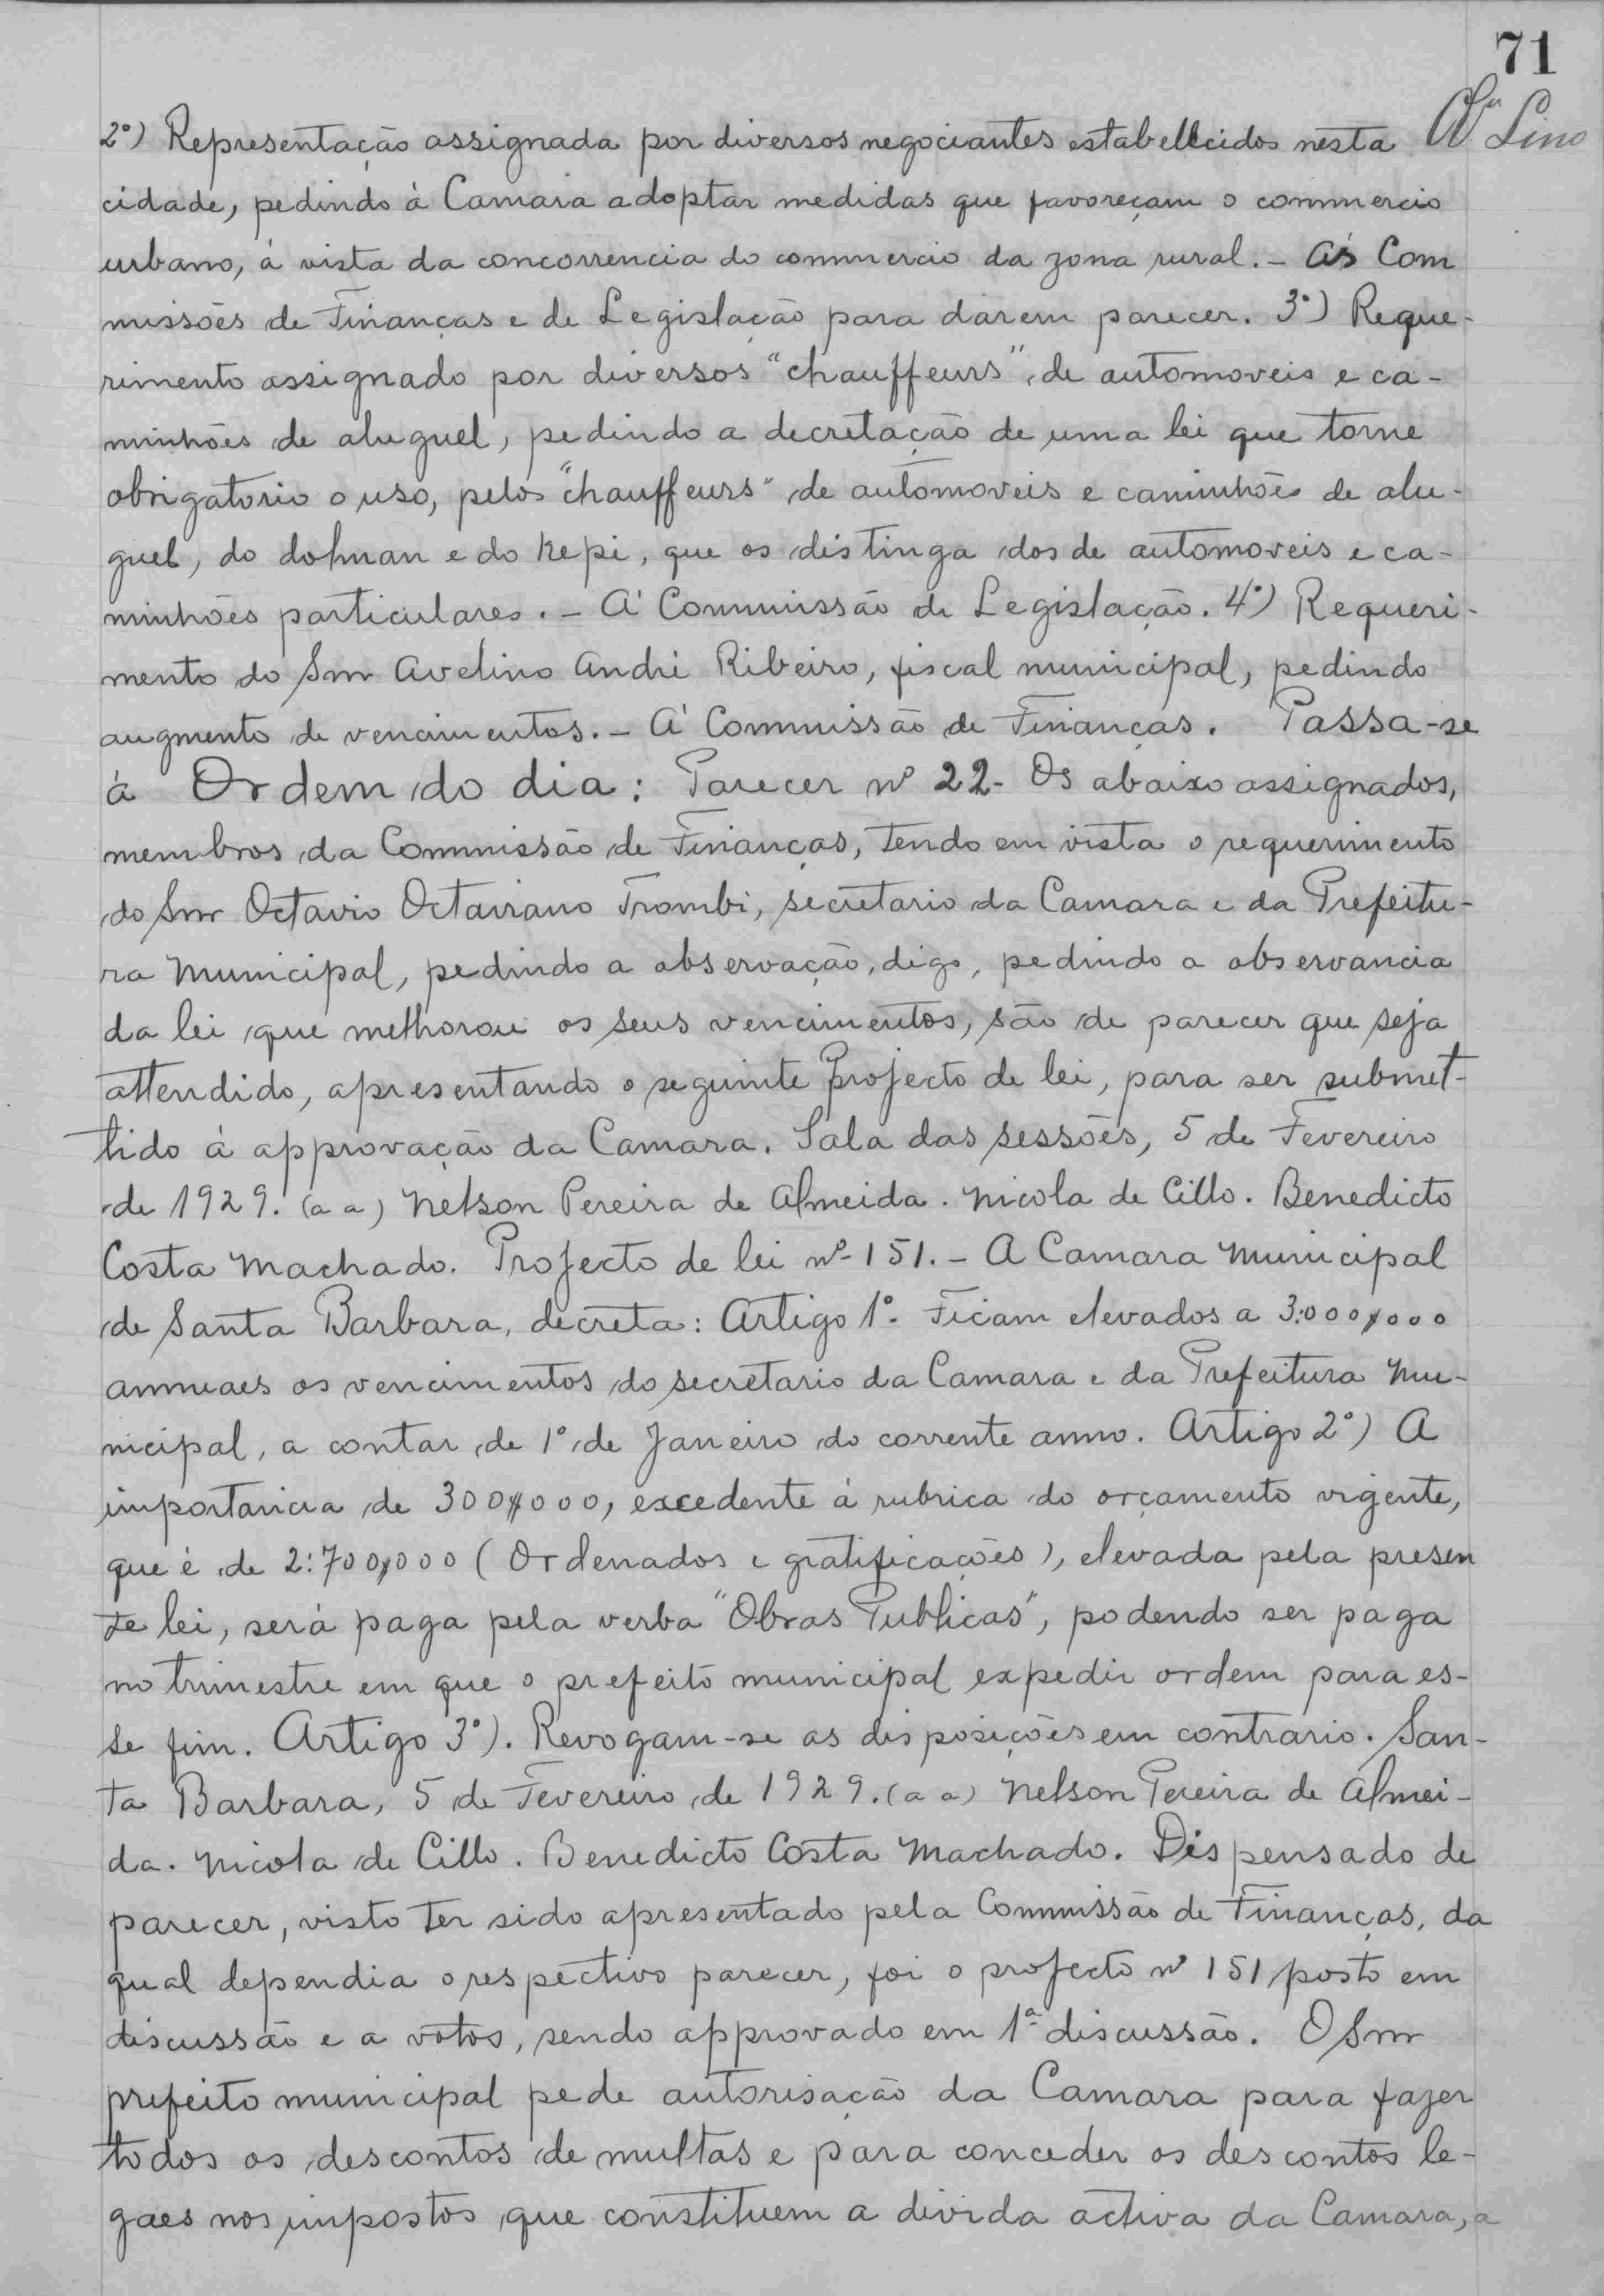 71
Lino
2º) Representação assignada por diversos negociantes estabellecidos nesta
cidade, pedindo á Camara adoptar medidas que favoreçam o commercio
urbano, á vista da concorrencia do commercio da zona rural. - Ás Com
missões de Finanças e de Legislação para darem parecer. 3º) Reque-
rimento assignado por diversos "chauffeurs" de automoveis e ca-
minhões de aluguel, pedindo a decretação de uma lei que torne
obrigatorio o uso, pelos "chauffeurs" de automoveis e caminhões de alu-
guel, do dolman e do kepi, que os distinga dos de automoveis e ca-
minhões particulares. - Á Commissão de Legislação. 4º) Requeri-
mento do Snr Avelino André Ribeiro, fiscal municipal, pedindo
augmento de vencimentos. - Á Commissão de Finanças. Passa-se
á Ordem do dia: Parecer nº 22- Os abaixo assignados,
membros da Commissão de Finanças, tendo em vista o requerimento
do Snr Octavio Octaviano Trombi, secretario da Camara e da Prefeitu-
ra Municipal, pedindo a observação, digo, pedindo a observancia
da lei que melhorou os seus vencimentos, são de parecer que seja
attendido, apresentando o seguinte projecto de lei, para ser submet-
tido á approvação da Camara. Sala das sessões, 5 de Fevereiro
de 1929. (a a) Nelson Pereira de Almeida. Nicola de Cillo. Benedicto
Costa Machado. Projecto de lei nº 151. - A Camara Municipal
de Santa Barbara, decreta: Artigo 1º. Ficam elevados a 3:000$000
annuaes os vencimentos do secretario da Camara e da Prefeitura Mu-
nicipal, a contar de 1º de Janeiro do corrente anno. Artigo 2º) A
importancia de 300$000, excedente á rubrica do orçamento vigente,
que é de 2:700$000 (Ordenados e gratificações), elevada pela presen
te lei, será paga pela verba "Obras Publicas", podendo ser paga
no trimestre em que o prefeito municipal expedir ordem para es-
se fim. Artigo 3º). Revogam-se as disposições em contrario. San-
ta Barbara, 5 de Fevereiro de 1929. (a a) Nelson Pereira de Almei-
da. Nicola de Cillo. Benedicto Costa Machado. Dispensado de
parecer, visto ter sido apresentado pela Commissão de Finanças, da
qual dependia o respectivo parecer, foi o projecto nº 151 posto em
discussão e a votos, sendo approvado em 1ª discussão. O Snr
prefeito municipal pede autorisação da Camara para fazer
todos os descontos de multas e para conceder os descontos le-
gaes nos impostos que constituem a divida activa da Camara, a